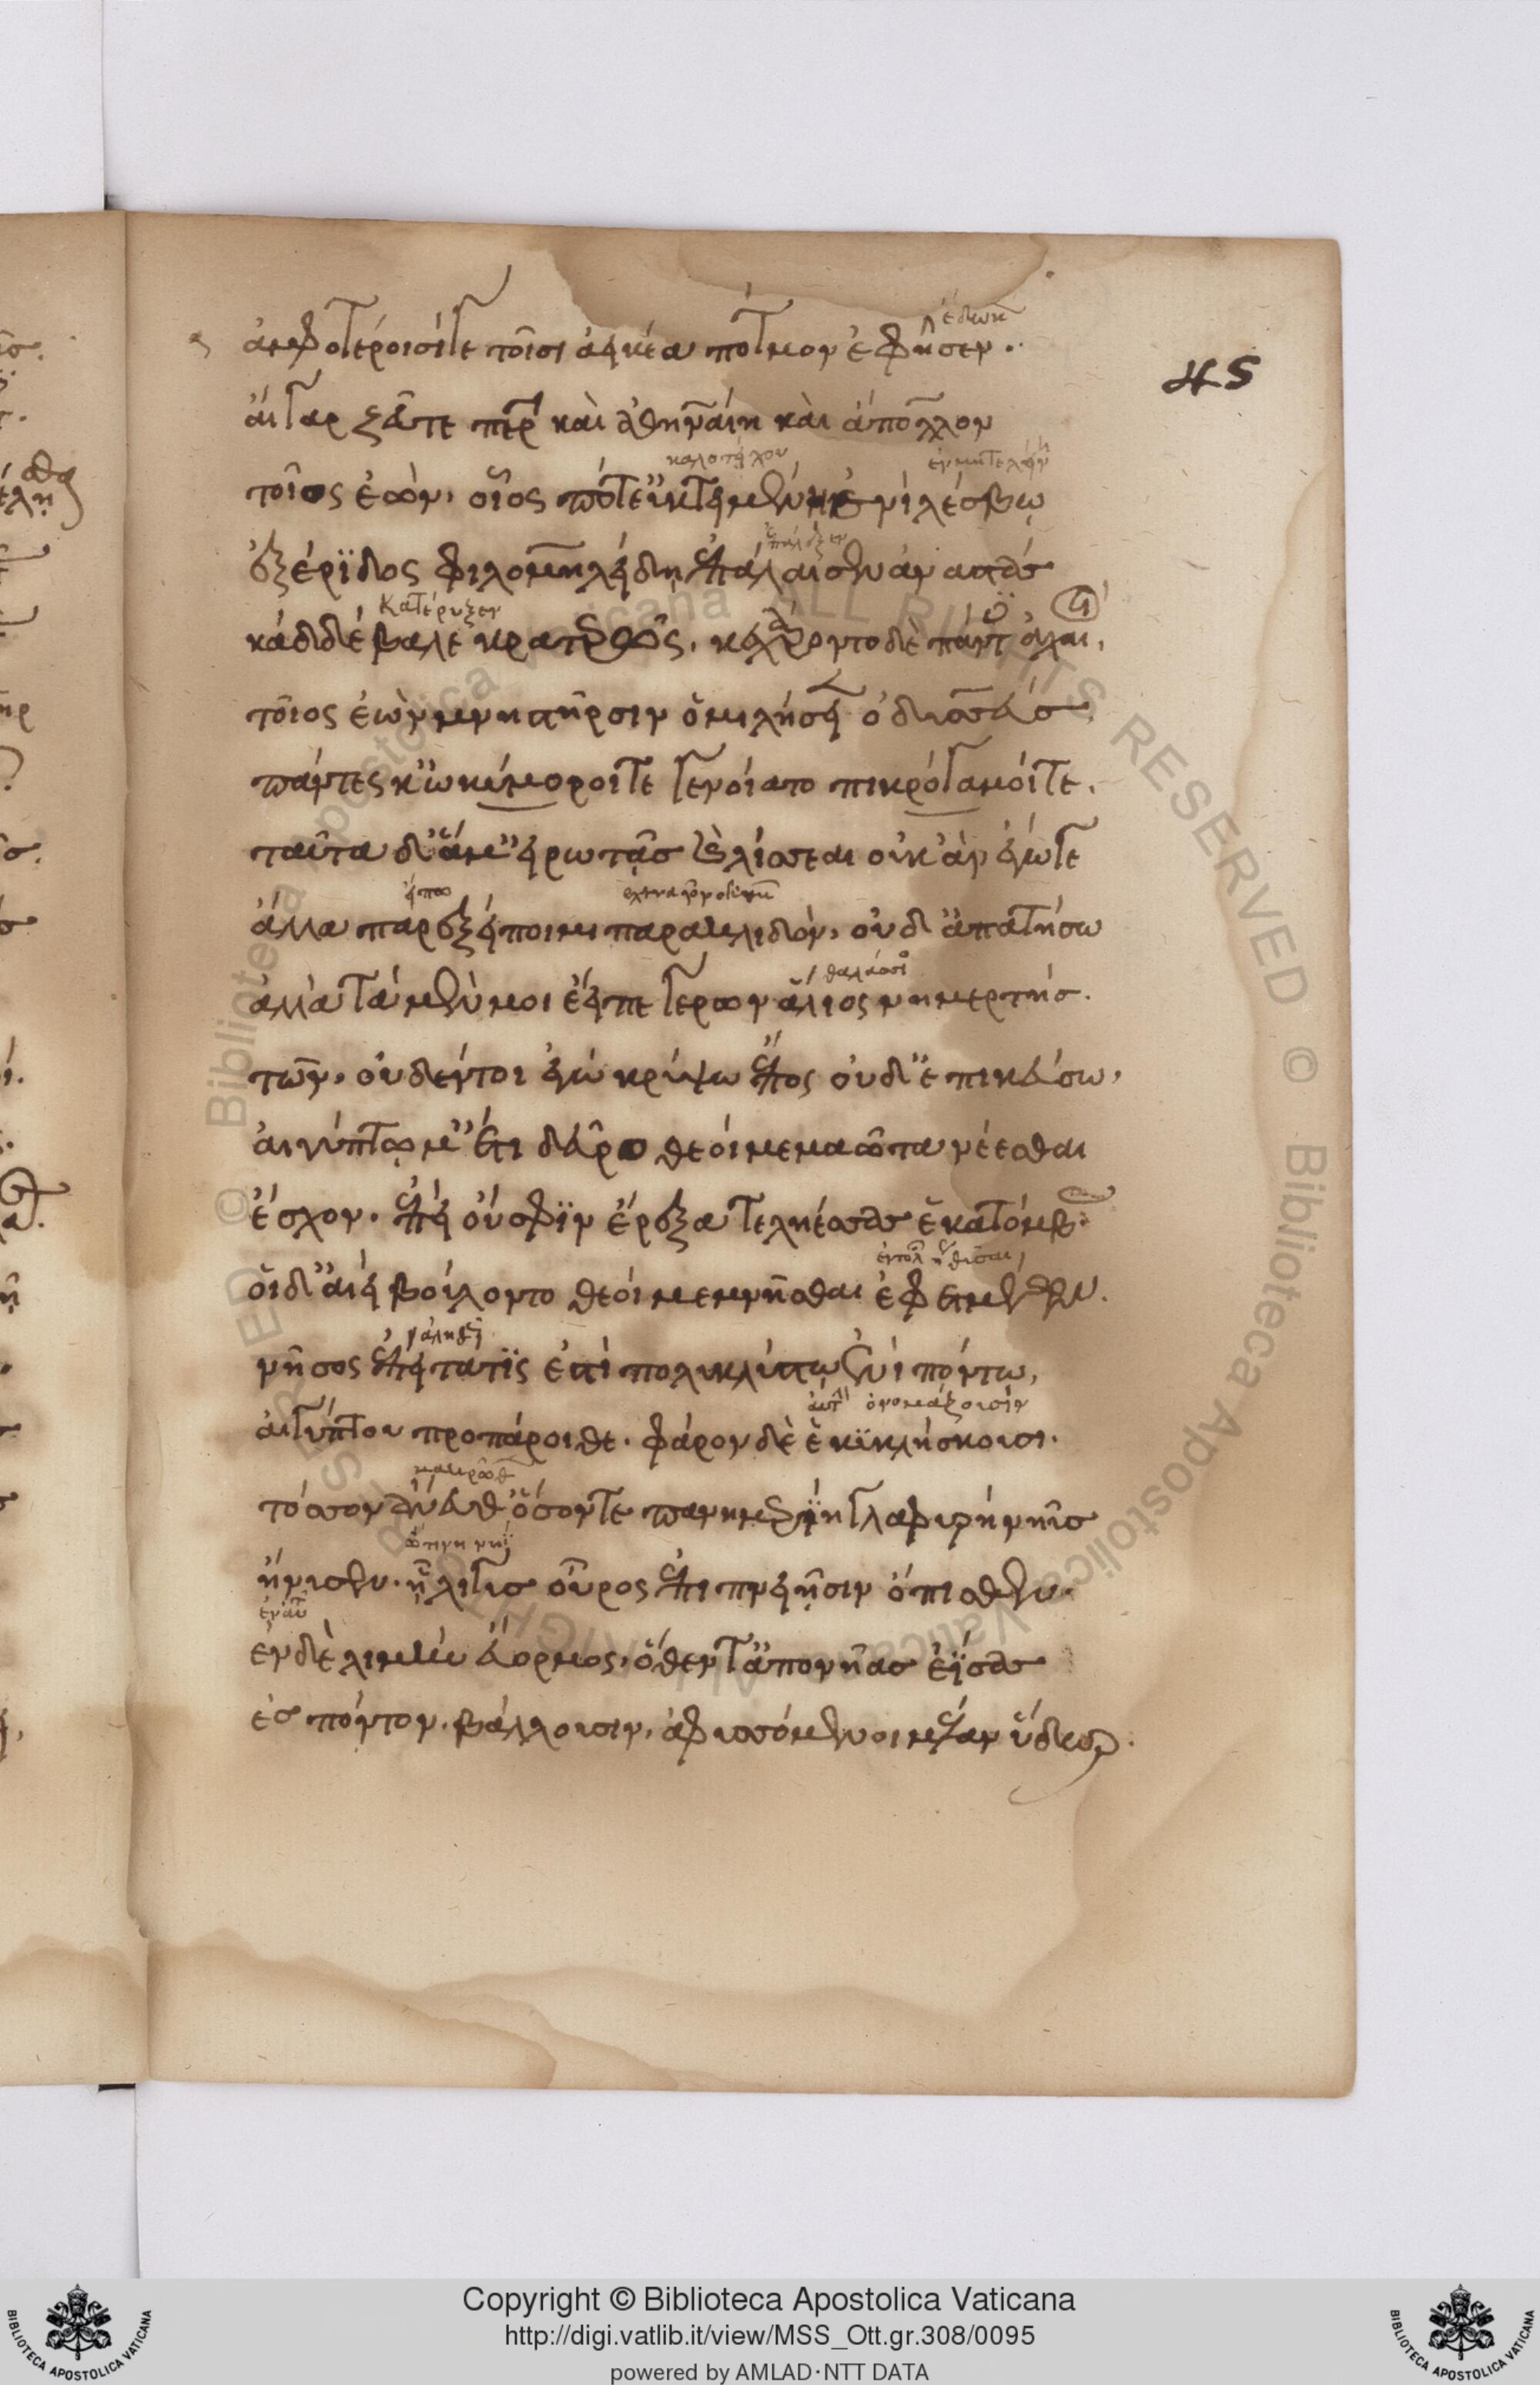 ἀμφοτέροισί γε τοῖσι ἀεικέα πότμον ἐφῆσεν.
αἲ γὰρ ζεῦ τε πάτερ καὶ ἀθηναίη καὶ ἄπολλον
τοῖος ἐὼν, οἷός ποτ' ἐυκτιμένη ἐνὶ λέσβω
ἐξ ἔριδος φιλομηλείδη ἐπάλαισεν ἀναστάς
Κατέρυξεν
κὰδ δ' ἔβαλε κρατερῶς, κεχάροντο δὲ πάντες ἀχαιοί,
τοῖος ἐὼν μνηστῆρσιν ὁμιλήσειεν ὀδυσσεύς
πάντες κ' ὠκύμοροί τε γενοίατο πικρόγαμοί τε.
ταῦτα δ' ἅ μ' εἰρωτᾷς καὶ λίσσεαι οὐκ ἂν ἐγώγε
ἄλλα παρὲξ εἴποιμι παρακλιδὸν, οὐδ' ἀπατήσω
ἀλλὰ τὰ μέν μοι ἔειπε γέρων ἅλιος νημερτής.
τῶν, οὐδέν τοι ἐγὼ κρύψω ἔπος οὐδ' ἐπικεύσω,
αἰγύπτω μ' ἔτι δεῦρο θεοὶ μεμαῶτα νέεσθαι
ἔσχον. ἐπεὶ οὔ σφιν ἔρεξα τεληέσσας ἑκατόμβας
οἱ δ' αἰεὶ βούλοντο θεοὶ μεμνῆσθαι ἐφετμέων.
νῆσος ἔπειτά τις ἐστὶ πολυκλύστω ἐνὶ πόντω,
ὀνομάζουσιν
αἰγύπτου προπάροιθε. φάρον δέ ἑ κικλήσκουσι.
τόσσον ἄνευθ' ὅσον τε πανημερίη γλαφυρὴ νηῦς
ἤνυσεν. ᾗ λιγὺς οὖρος ἐπιπνείῃσιν ὄπισθεν.
ἐν δὲ λιμὴν εὔορμος, ὅθεν τ' ἀπὸ νῆας ἐΐσας
ἐς πόντον, βάλλουσιν, ἀφυσσόμενοι μέλαν ὕδωρ.
45
Copyright © Biblioteca Apostolica Vaticana
http://digi.vatlib.it/view/MSS_Ott.gr.308/0095
powered by AMLAD·NTT DATA
BIBLIOTECA APOSTOLICA VATICANA
BIBLIOTECA APOSTOLICA VATICANA